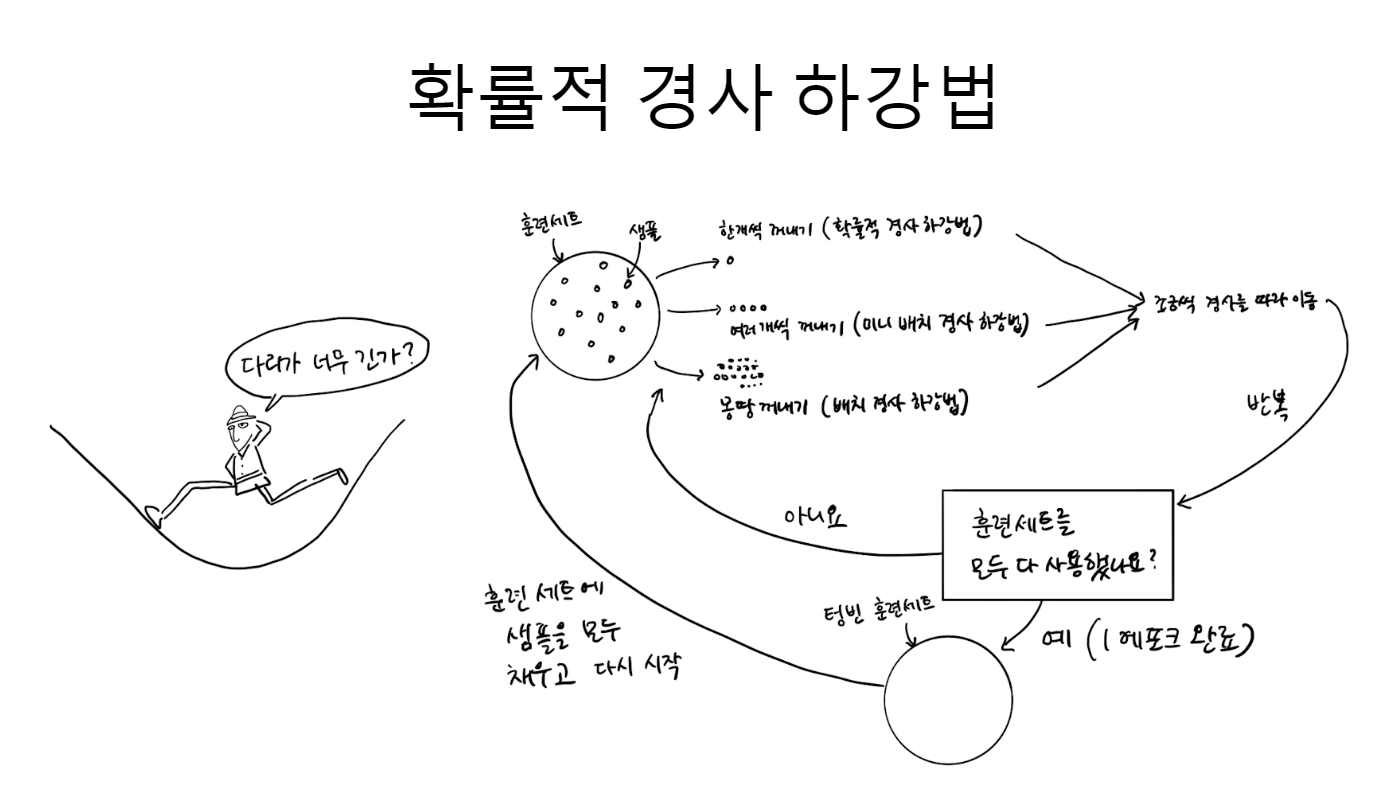 확률적 경사 하강법
훈련세트
샘플
한개씩 꺼내기 (확률적 경사 하강법)
여러개씩 꺼내기 (미니 배치 경사 하강법)
몽땅 꺼내기 (배치 경사 하강법)
조금씩 경사를 따라 이동
반복
다리가 너무 긴가?
훈련세트를
모두 다 사용했나요?
아니요
예 (1 에포크 완료)
텅빈 훈련세트
훈련 세트에
샘플을 모두
채우고 다시 시작